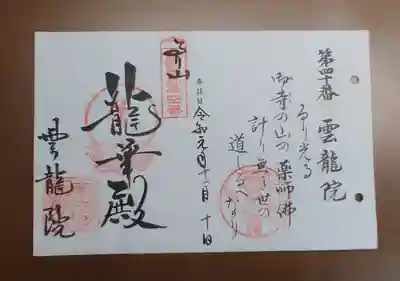 第四十番 雲龍院
るり光る
御寺の山の薬師佛
計り無き世の
道しるべなり
令和元年十一月十日
泉山
龍華殿
雲龍院